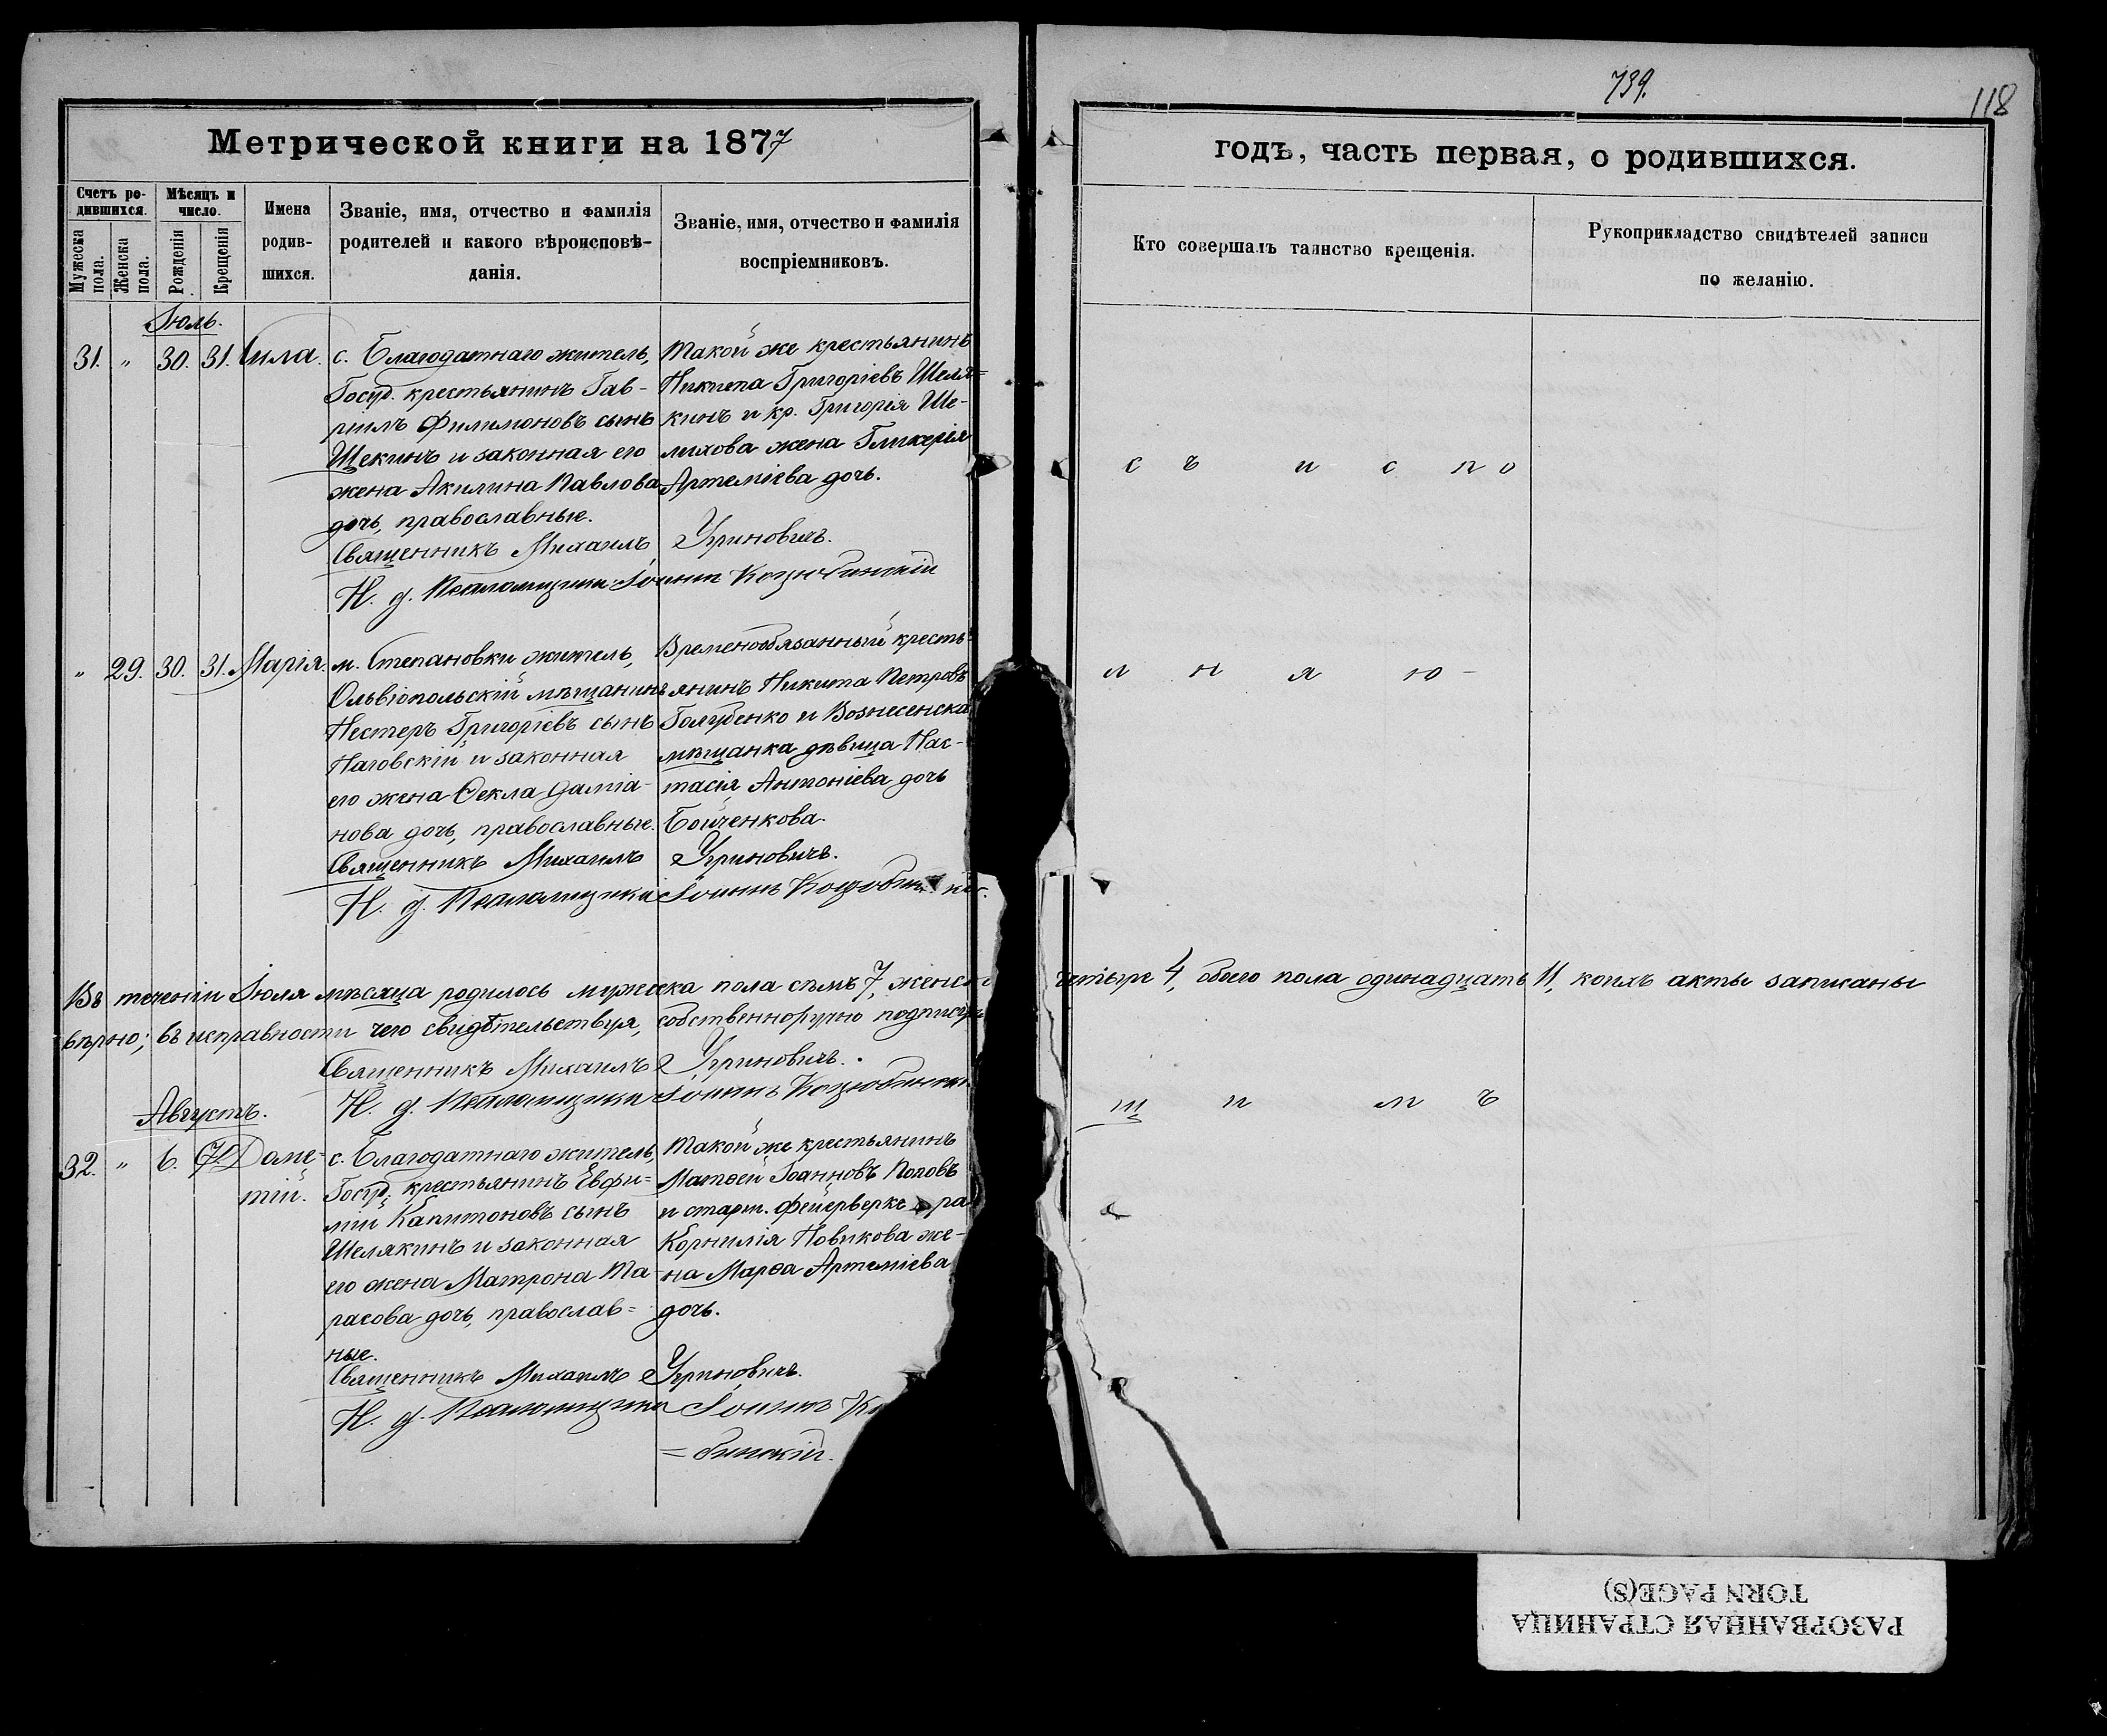 739.
118
Метрической книги на 1877
годъ, часть первая, о родившихся.
Счетъ родившихся.
Мужеска пола.
Женска пола.
Мѣсяцъ и число.
Рожденія
Крещенія
Имена родившихся.
Званіе, имя, отчество и фамилія
родителей и какого вѣроисповѣ-
данія.
Званіе, имя, отчество и фамилія
воспріемниковъ.
Кто совершалъ таинство крещенія.
Рукоприкладство свидѣтелей записи
по желанію.
Іюль.
31. " 30. 31. Сила.
с. Благодатнаго житель,
Госуд. крестьянинъ Гав-
ріилъ Филимоновъ сынъ
Щекинъ и законная его
жена Акилина Павлова
дочь, православные.
Такой же крестьянинъ
Никита Григоріевъ Шеля=
кинъ и кр. Григорія Ше-
лихова жена Гликерія
Артеміева дочь.
Священникъ Михаилъ Угриновичъ.
Н. д. Псаломщика Іоаннъ Коцюбинскій
съ и с по
" 29. 30. 31. Марія.
м. Степановки житель,
Ольвіопольскій мѣщанинъ
Нестеръ Григоріевъ сынъ
Паговскій и законная
его жена Ѳекла Даміа-
нова дочь, православные.
Временнообязанный кресть-
янинъ Никита Петровъ
Голубенко и Вознесенска
мѣщанка дѣвица Нас-
тасія Антоніева дочь
Бойченкова.
Священникъ Михаилъ Угриновичъ.
Н. д. Псаломщика Іоаннъ
л н я ю -
Въ теченіи Іюля мѣсяца родилось мужеска пола сѣмъ 7, женск четыре 4, обоего пола одинадцать 11, коихъ акты записаны
вѣрно; въ исправности чего свидѣтельствуя, собственноручно
Священникъ Михаилъ Угриновичъ.
Н. д. Псаломщика Іоаннъ
щ и м ъ
Августъ.
32. " 6. 7. Доме-
тій.
с. Благодатнаго житель,
Госуд. крестьянинъ Евфи=
мій Капитоновъ сынъ
Шелякинъ и законная
его жена Матрона Та-
расова дочь, православ=
ные.
Такой же крестьянинъ
Матѳей Іоанновъ Поповъ
и старш. фейерверке ра
Корнилія Новикова же-
на Марѳа Артеміева
дочь.
Священникъ Михаилъ Угриновичъ.
Н. д. Псаломщика Іоаннъ Ко
=бинскій.
РАЗОРВАННАЯ СТРАНИЦА
TORN PAGE(S)